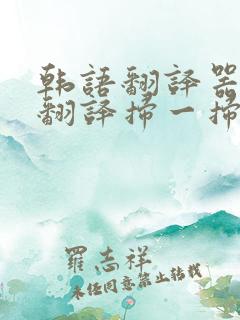 韩語翻譯器
翻譯掃一掃
羅志祥
未经同意禁止转载